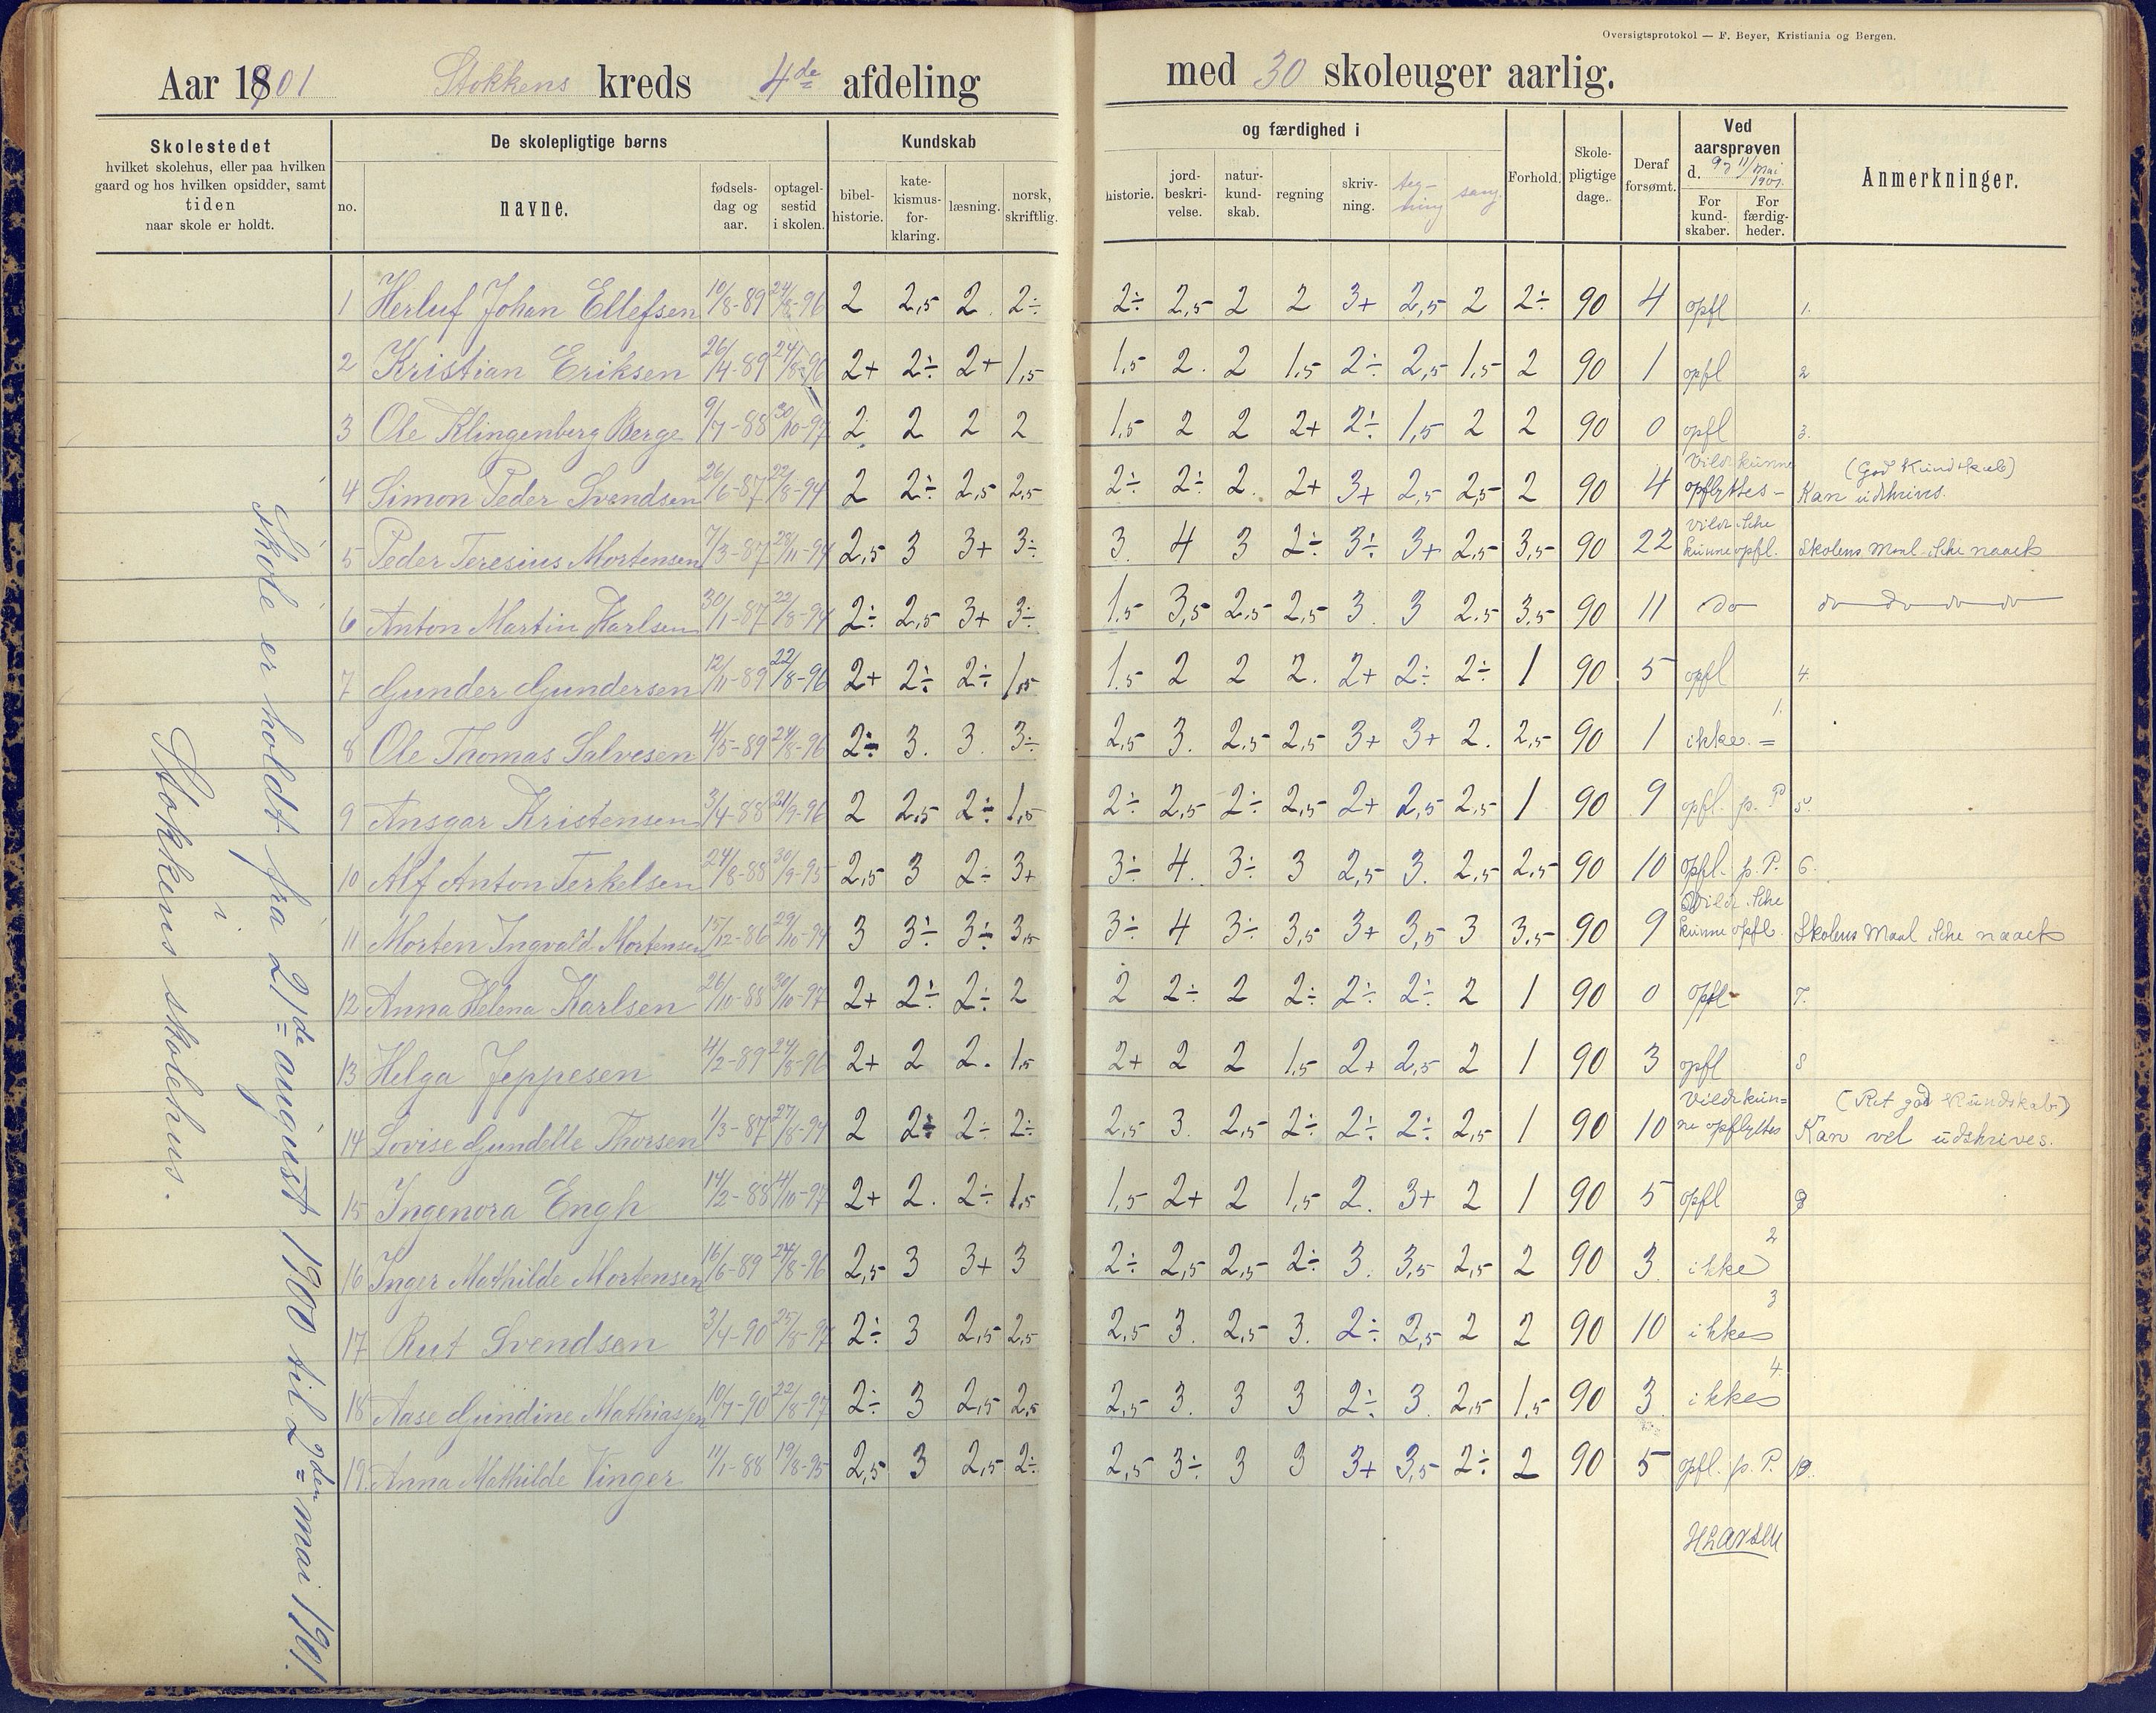 Oversigtsprotokol — F. Beyer, Kristiania og Bergen.
Aar 1901 Stokkens kreds 4de afdeling med 30 skoleuger aarlig.
Skolestedet
hvilket skolehus, eller paa hvilken
gaard og hos hvilken opsidder, samt
tiden
naar skole er holdt.
De skolepligtige børns
no. navne. fødsels-dag og aar. optagel-sestid i skolen.
Kundskab og færdighed i
bibel-historie. kate-kismus-for-klaring. læsning. norsk, skriftlig. historie. jord-beskri-velse. natur-kund-skab. regning skriv-ning. teg-ning sang.
Forhold. Skole-pligtige dage. Deraf forsømt.
Ved aarsprøven d. 9 og 11/Mai 1901.
For kund-skaber. For færdig-heder.
Anmerkninger.
Skole er holdt fra 21de august 1900 til 2den mai 1901.
i
Stokkens skolehus.
1 Herluf Johan Ellefsen 10/8-89 24/8-96 2 2,5 2. 2÷ 2÷ 2,5 2 2 3+ 2,5 2 2÷ 90 4 opfl 1.
2 Kristian Eriksen 26/4-89 24/8-96 2+ 2÷ 2+ 1,5 1,5 2. 2 1,5 2÷ 2,5 1,5 2 90 1 opfl 2
3 Ole Klingenberg Berge 9/7-88 30/10-97 2. 2 2 2 1,5 2 2 2+ 2÷ 1,5 2 2 90 0 opfl 3.
4 Simon Peder Svendsen 26/6-87 22/8-94 2 2÷ 2,5 2,5 2÷ 2÷ 2. 2+ 3+ 2,5 2,5 2 90 4 Vilde kunne opflyttes- (God Kundskab) Kan udskrives.
5 Peder Teresius Mortensen 7/3-87 28/11-94 2,5 3 3+ 3÷ 3. 4 3 2÷ 3÷ 3+ 2,5 3,5 90 22 Vilde ikke kunne opfl. Skolens Maal ikke naaet
6 Anton Martin Karlsen 30/1-87 22/8-94 2÷ 2,5 3+ 3÷ 1,5 3,5 2,5 2,5 3. 3 2,5 3,5 90 11 do do do do do
7 Gunder Gundersen 12/11-89 22/8-96 2+ 2÷ 2÷ 1,5 1,5 2 2 2. 2+ 2÷ 2÷ 1 90 5 opfl 4.
8 Ole Thomas Salvesen 4/5-89 24/8-96 2÷ 3. 3. 3÷ 2,5 3. 2,5 2,5 3+ 3+ 2. 2,5 90 1 ikke. = 1.
9 Ansgar Kristensen 3/4-88 21/9-96 2 2,5 2÷ 1,5 2÷ 2,5 2÷ 2,5 2+ 2,5 2,5 1 90 9 opfl. p. P 5.
10 Alf Anton Terkelsen 24/8-88 30/9-95 2,5 3 2÷ 3+ 3÷ 4. 3÷ 3 2,5 3. 2,5 2,5 90 10 opfl. p. P. 6.
11 Morten Ingvald Mortensen 15/12-86 29/10-94 3 3÷ 3÷ 3,5 3÷ 4 3÷ 3,5 3+ 3,5 3 3,5 90 9 Vilde ikke kunne opfl. Skolens Maal ikke naaet
12 Anna Helena Karlsen 26/10-88 30/10-97 2+ 2÷ 2÷ 2 2 2÷ 2 2÷ 2÷ 2÷ 2 1 90 0 opfl 7.
13 Helga Jeppesen 4/2-89 24/8-96 2+ 2 2. 1,5 2+ 2 2 1,5 2+ 2,5 2 1 90 3 opfl 8
14 Lovise Gundelle Thorsen 1/3-87 27/8-94 2 2÷ 2÷ 2÷ 2,5 3. 2,5 2÷ 2÷ 2÷ 2,5 1 90 10 Vilde kun=ne opflyttes (Ret god Kundskab) Kan vel udskrives.
15 Ingenora Engh 14/2-88 4/10-97 2+ 2. 2÷ 1,5 1,5 2+ 2 1,5 2. 3+ 2 1 90 5 opfl 9
16 Inger Mathilde Mortensen 16/6-89 24/8-96 2,5 3 3+ 3 2÷ 2,5 2,5 2÷ 3. 3,5 2,5 2 90 3. ikke 2
17 Rut Svendsen 3/4-90 25/8-97 2÷ 3 2,5 2,5 2,5 3. 2,5 3. 2÷ 2,5 2 2 90 10 ikke 3
18 Aase Gundine Mathiassen 10/7-90 22/8-97 2÷ 3 2,5 2,5 2,5 3. 3 3 2÷ 3. 2,5 1,5 90 3 ikke 4
19. Anna Mathilde Vinger 11/1-88 19/8-95 2,5 3 2,5 2÷ 2,5 3÷ 3 3 3+ 3,5 2÷ 2 90 5 opfl. p. P. 10.